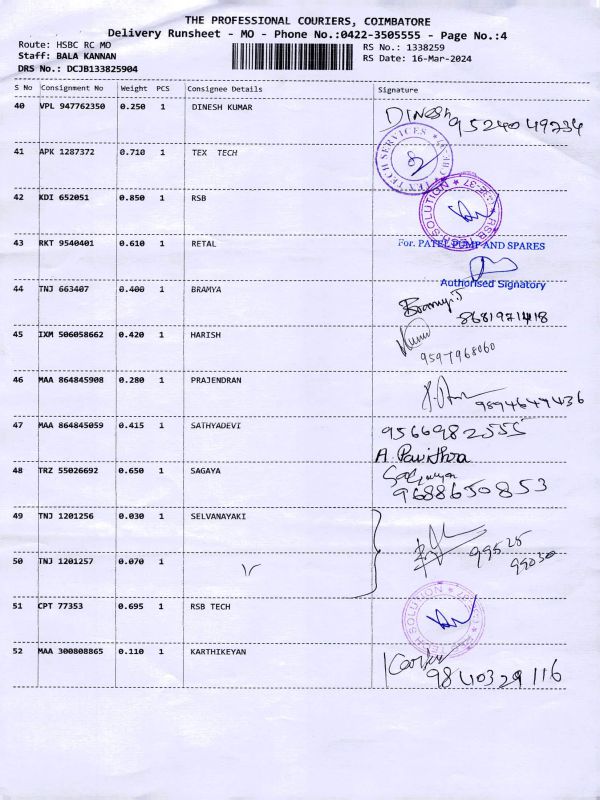 THE PROFESSIONAL COURIERS, COIMBATORE
Delivery Runsheet - MO - Phone No.:0422-3505555 - Page No.:4
Route: HSBC RC MO
RS No.: 1338259
Staff: BALA KANNAN
RS Date: 16-Mar-2024
DRS No.: DCJB133825904
S No Consignment No Weight PCS Consignee Details Signature
40 VPL 947762350 0.250 1 DINESH KUMAR DINESH
9524049234
41 APK 1287372 0.710 1 TEX TECH
42 KDI 652051 0.850 1 RSB
43 RKT 9540401 0.610 1 RETAL
For. PATEL PUMP AND SPARES
Authorised Signatory
44 TNJ 663407 0.400 1 BRAMYA
8681971418
45 IXM 506058662 0.420 1 HARISH
9597968060
46 MAA 864845908 0.280 1 PRAJENDRAN
9894649436
47 MAA 864845059 0.415 1 SATHYADEVI 9566982555
A. Pavithra
48 TRZ 55026692 0.650 1 SAGAYA
9688650853
49 TNJ 1201256 0.030 1 SELVANAYAKI
99525
99030
50 TNJ 1201257 0.070 1
51 CPT 77353 0.695 1 RSB TECH
52 MAA 300808865 0.110 1 KARTHIKEYAN
9840329116